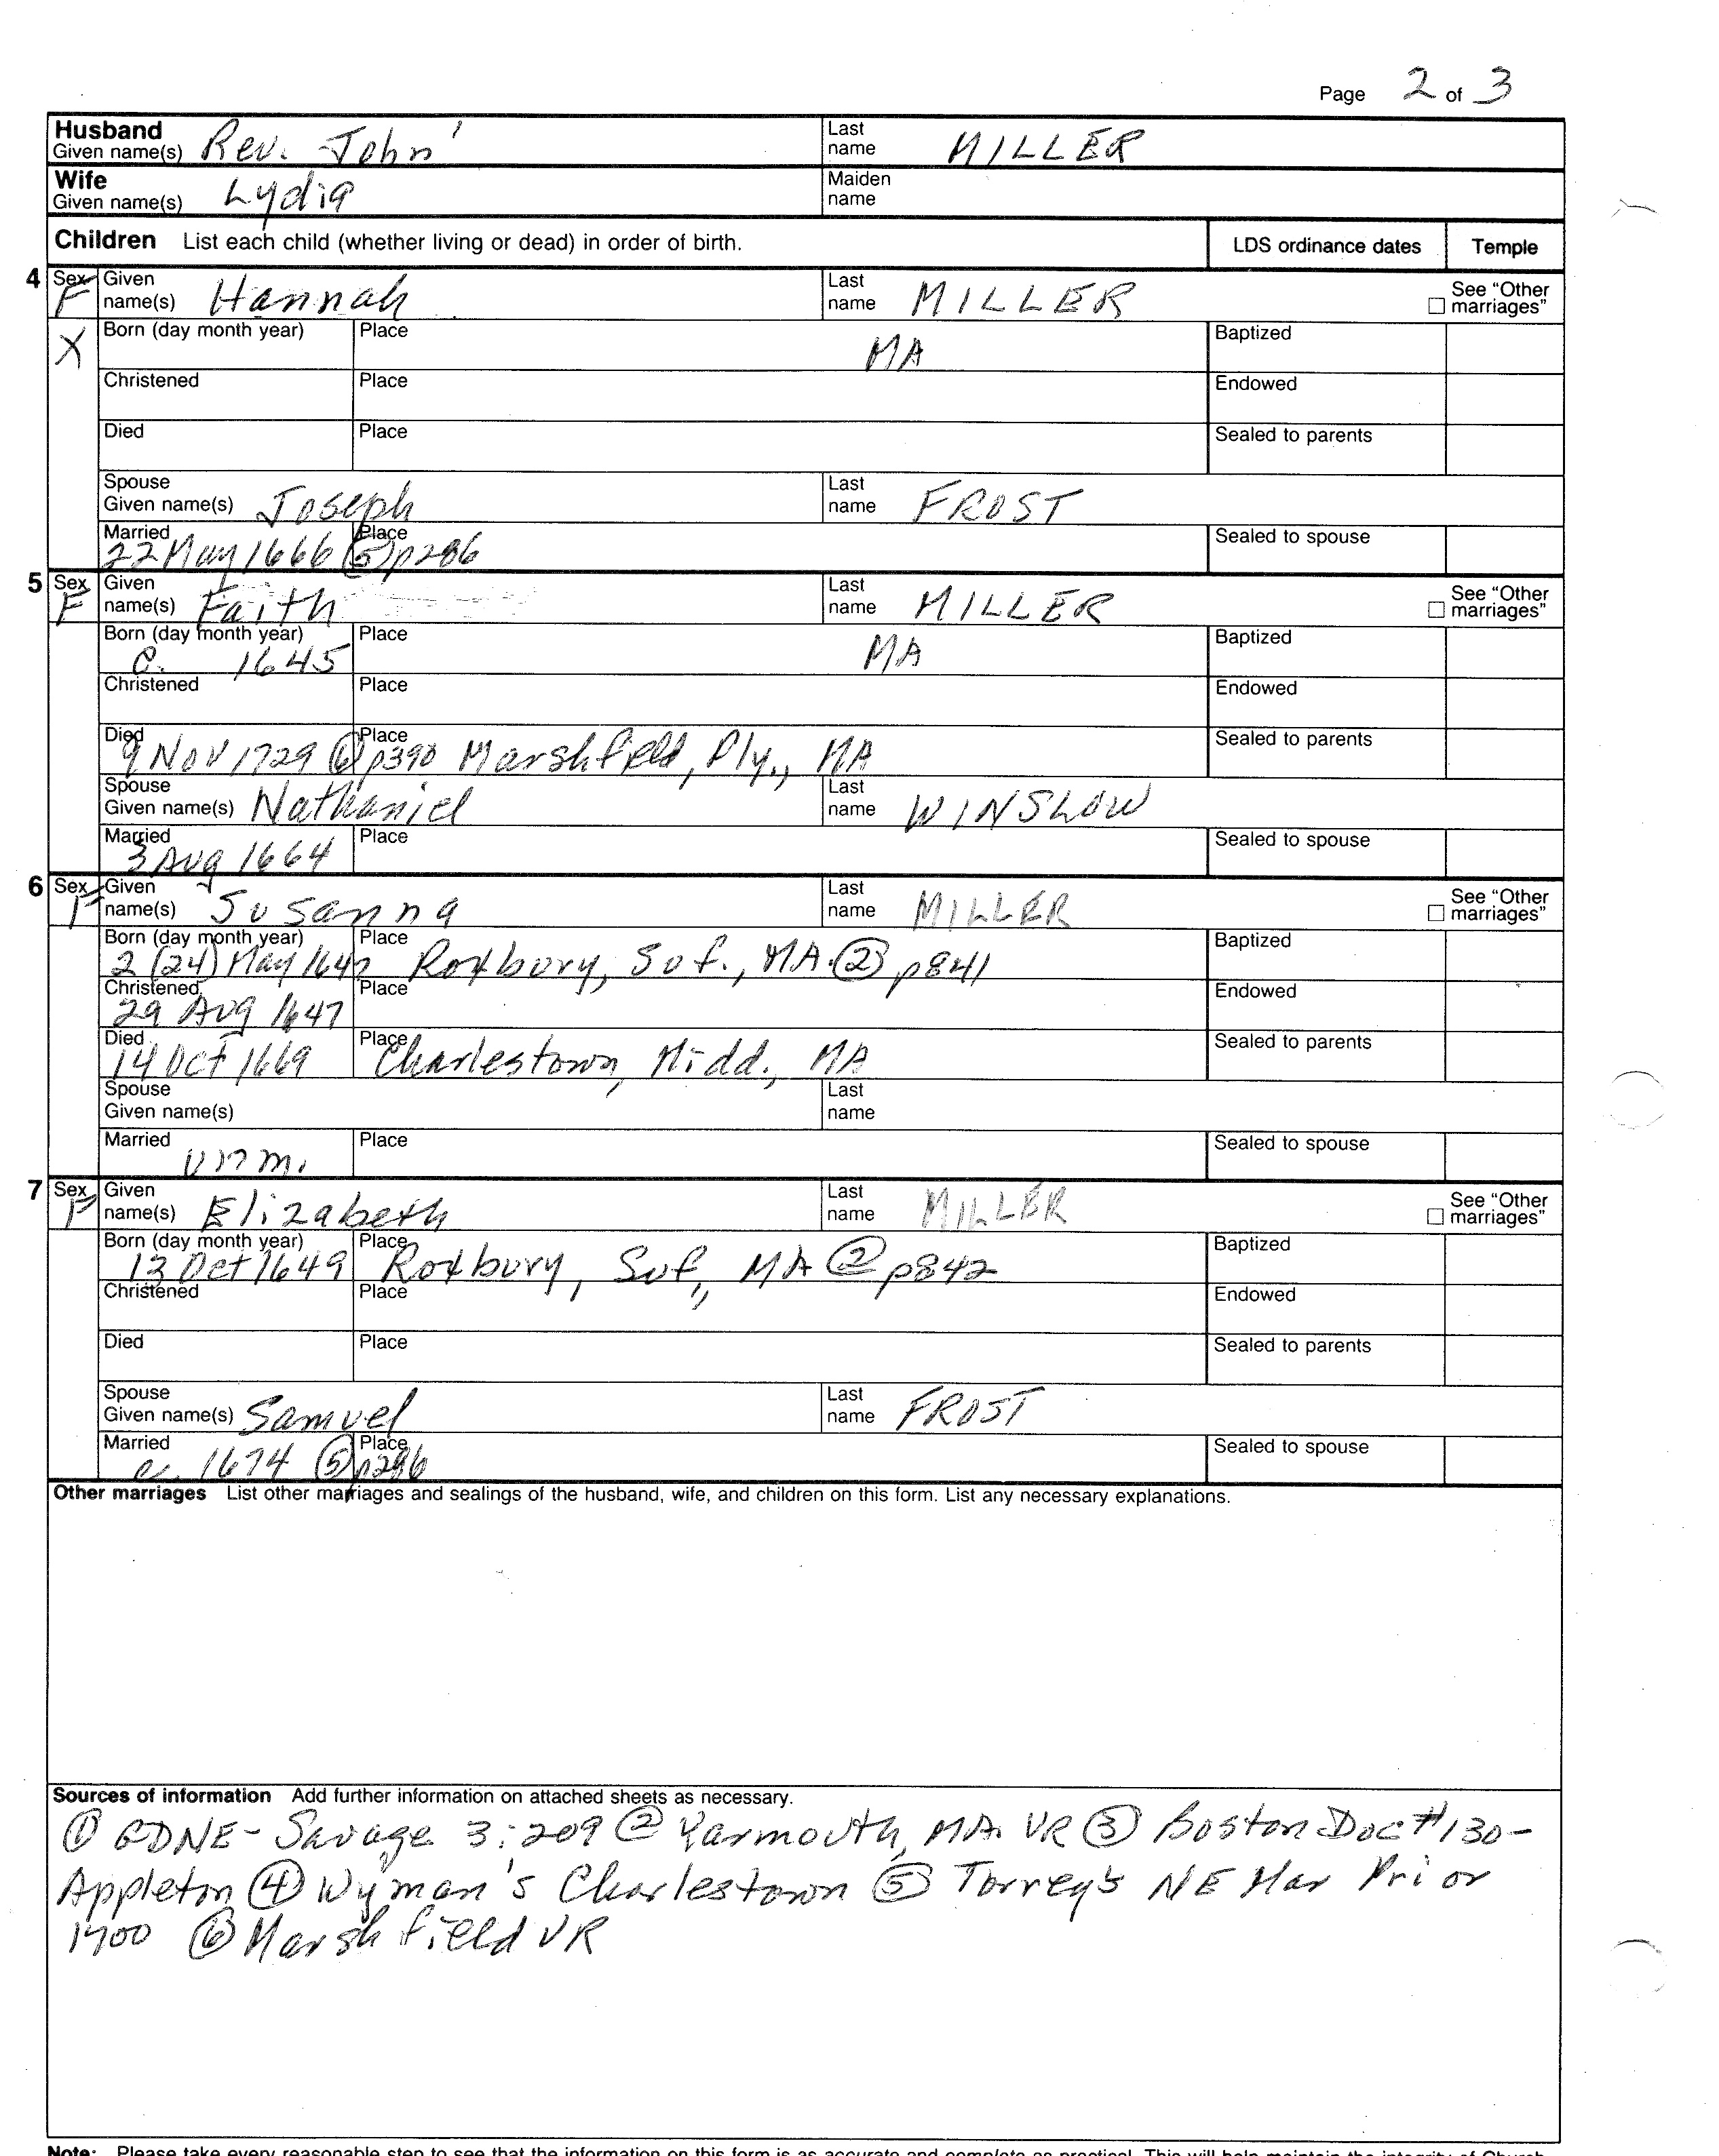 Page 2 of 3
Husband Given name(s) Rev. John' Last name MILLER
Wife Given name(s) Lydia Maiden name
Children List each child (whether living or dead) in order of birth. LDS ordinance dates Temple
4 Sex F Given name(s) Hannah Last name MILLER See "Other marriages"
X Born (day month year) Place MA Baptized
Christened Place Endowed
Died Place Sealed to parents
Spouse Given name(s) Joseph Last name FROST
Married 22 May 1666 Place ⑤ p286 Sealed to spouse
5 Sex F Given name(s) Faith Last name MILLER See "Other marriages"
Born (day month year) c. 1645 Place MA Baptized
Christened Place Endowed
Died 9 Nov 1729 Place ⑥ p390 Marshfield, Ply., MA Sealed to parents
Spouse Given name(s) Nathaniel Last name WINSLOW
Married 3 Aug 1664 Place Sealed to spouse
6 Sex F Given name(s) Susanna Last name MILLER See "Other marriages"
Born (day month year) 2 (24) May 1647 Place Roxbury, Suf., MA. ② p841 Baptized
Christened 29 Aug 1647 Place Endowed
Died 14 Oct 1669 Place Charlestown, Midd., MA Sealed to parents
Spouse Given name(s) Last name
Married unm. Place Sealed to spouse
7 Sex F Given name(s) Elizabeth Last name MILLER See "Other marriages"
Born (day month year) 13 Oct 1649 Place Roxbury, Suf., MA ② p842 Baptized
Christened Place Endowed
Died Place Sealed to parents
Spouse Given name(s) Samuel Last name FROST
Married c. 1674 Place ⑤ p286 Sealed to spouse
Other marriages List other marriages and sealings of the husband, wife, and children on this form. List any necessary explanations.
Sources of information Add further information on attached sheets as necessary.
① GDNE- Savage 3:209 ② Yarmouth, MA. VR ③ Boston Doc #130-
Appleton ④ Wyman's Charlestown ⑤ Torrey's NE Mar Prior
1700 ⑥ Marshfield VR
Note: Please take every reasonable step to see that the information on this form is as accurate and complete as practical. This will help maintain the integrity of Church